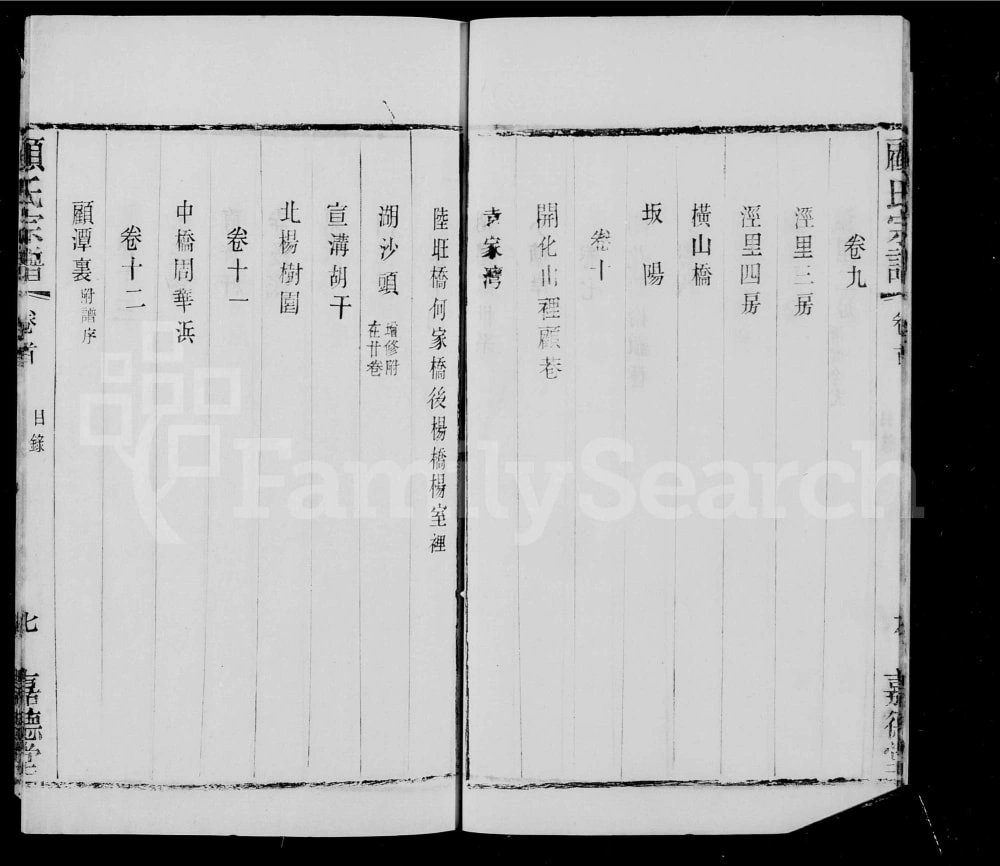 顧氏宗譜
卷首
嘉德堂
卷九
涇里三房
涇里四房
橫山橋
坂陽
卷十
開化山裡顧巷
袁家灣
陸旺橋何家橋後楊橋楊室裡
湖沙頭 增修附在廿卷
宣溝胡干
北楊樹園
卷十一
中橋周華浜
卷十二
顧潭裏 附譜序
顧氏宗譜
卷首
目錄
七
嘉德堂
FamilySearch